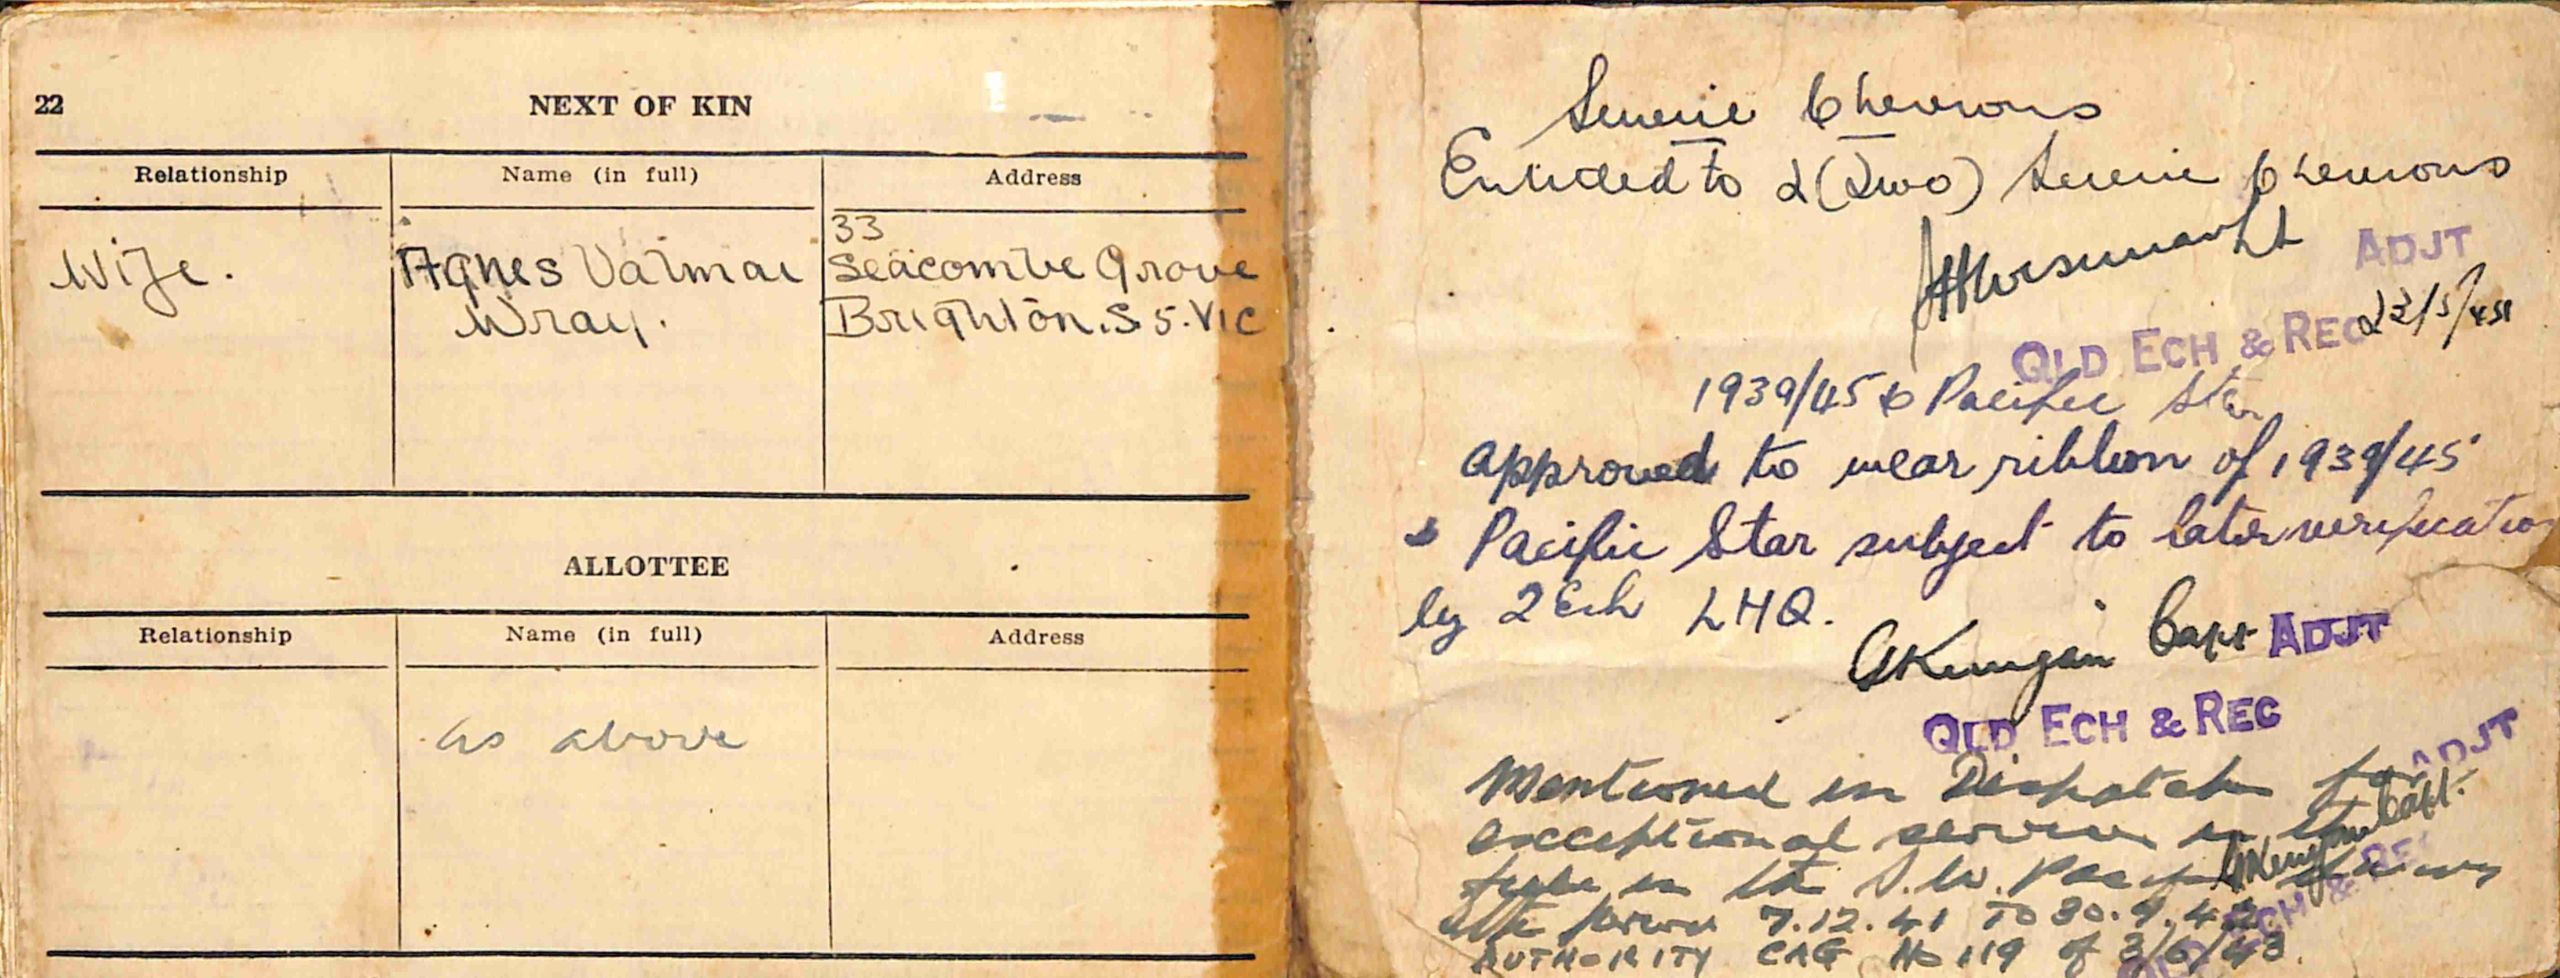 22
NEXT OF KIN
Relationship Name (in full) Address
Wife. Agnes Valmai Wray. 33 Seacombe Grove Brighton. S 5. Vic
ALLOTTEE
Relationship Name (in full) Address
as above
Service Chevrons
Entitled to 2 (Two) Service Chevrons
Lt ADJT
22/5/45
QLD ECH & REC
1939/45 & Pacific Star
approved to wear ribbon of 1939/45
& Pacific Star subject to later verification
by 2 Ech LHQ.
Capt ADJT
QLD ECH & REC
ADJT
Mentioned in Dispatches for
Capt.
exceptional service in the
field in the S.W. Pacific
the period 7.12.41 TO 30.9.42
ECH & REC
AUTHORITY CAG No 119 of 3/6/43.